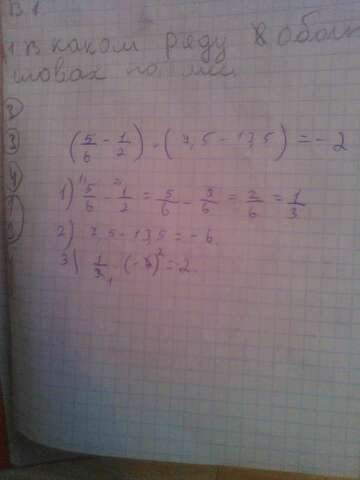 В 1
1. В каком ряду
словах
2
3
4
(5/6 - 1/2) · (7,5 - 13,5) = -2
1) 5/6 - 1/2 = 5/6 - 3/6 = 2/6 = 1/3
2) 7,5 - 13,5 = -6
3) 1/3 · (-6) = -2.